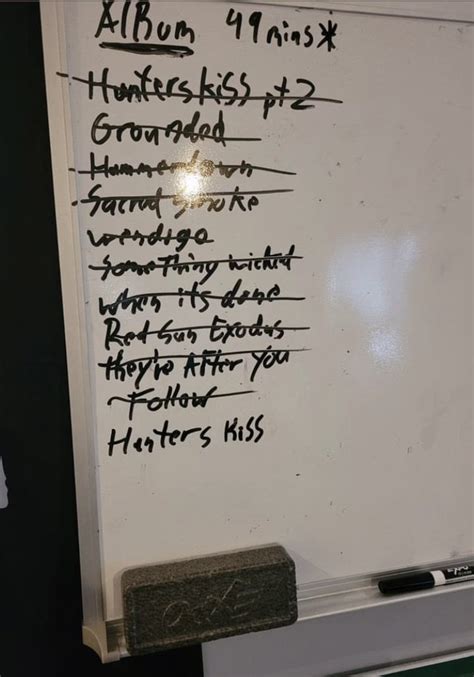 Album 49 mins*
- Hunters Kiss pt 2
Grounded
- Hammerdown
- Sacred Smoke
Wendigo
Something wicked
when its done
Red Sun Exodus
they're After You
Follow
Hunters Kiss